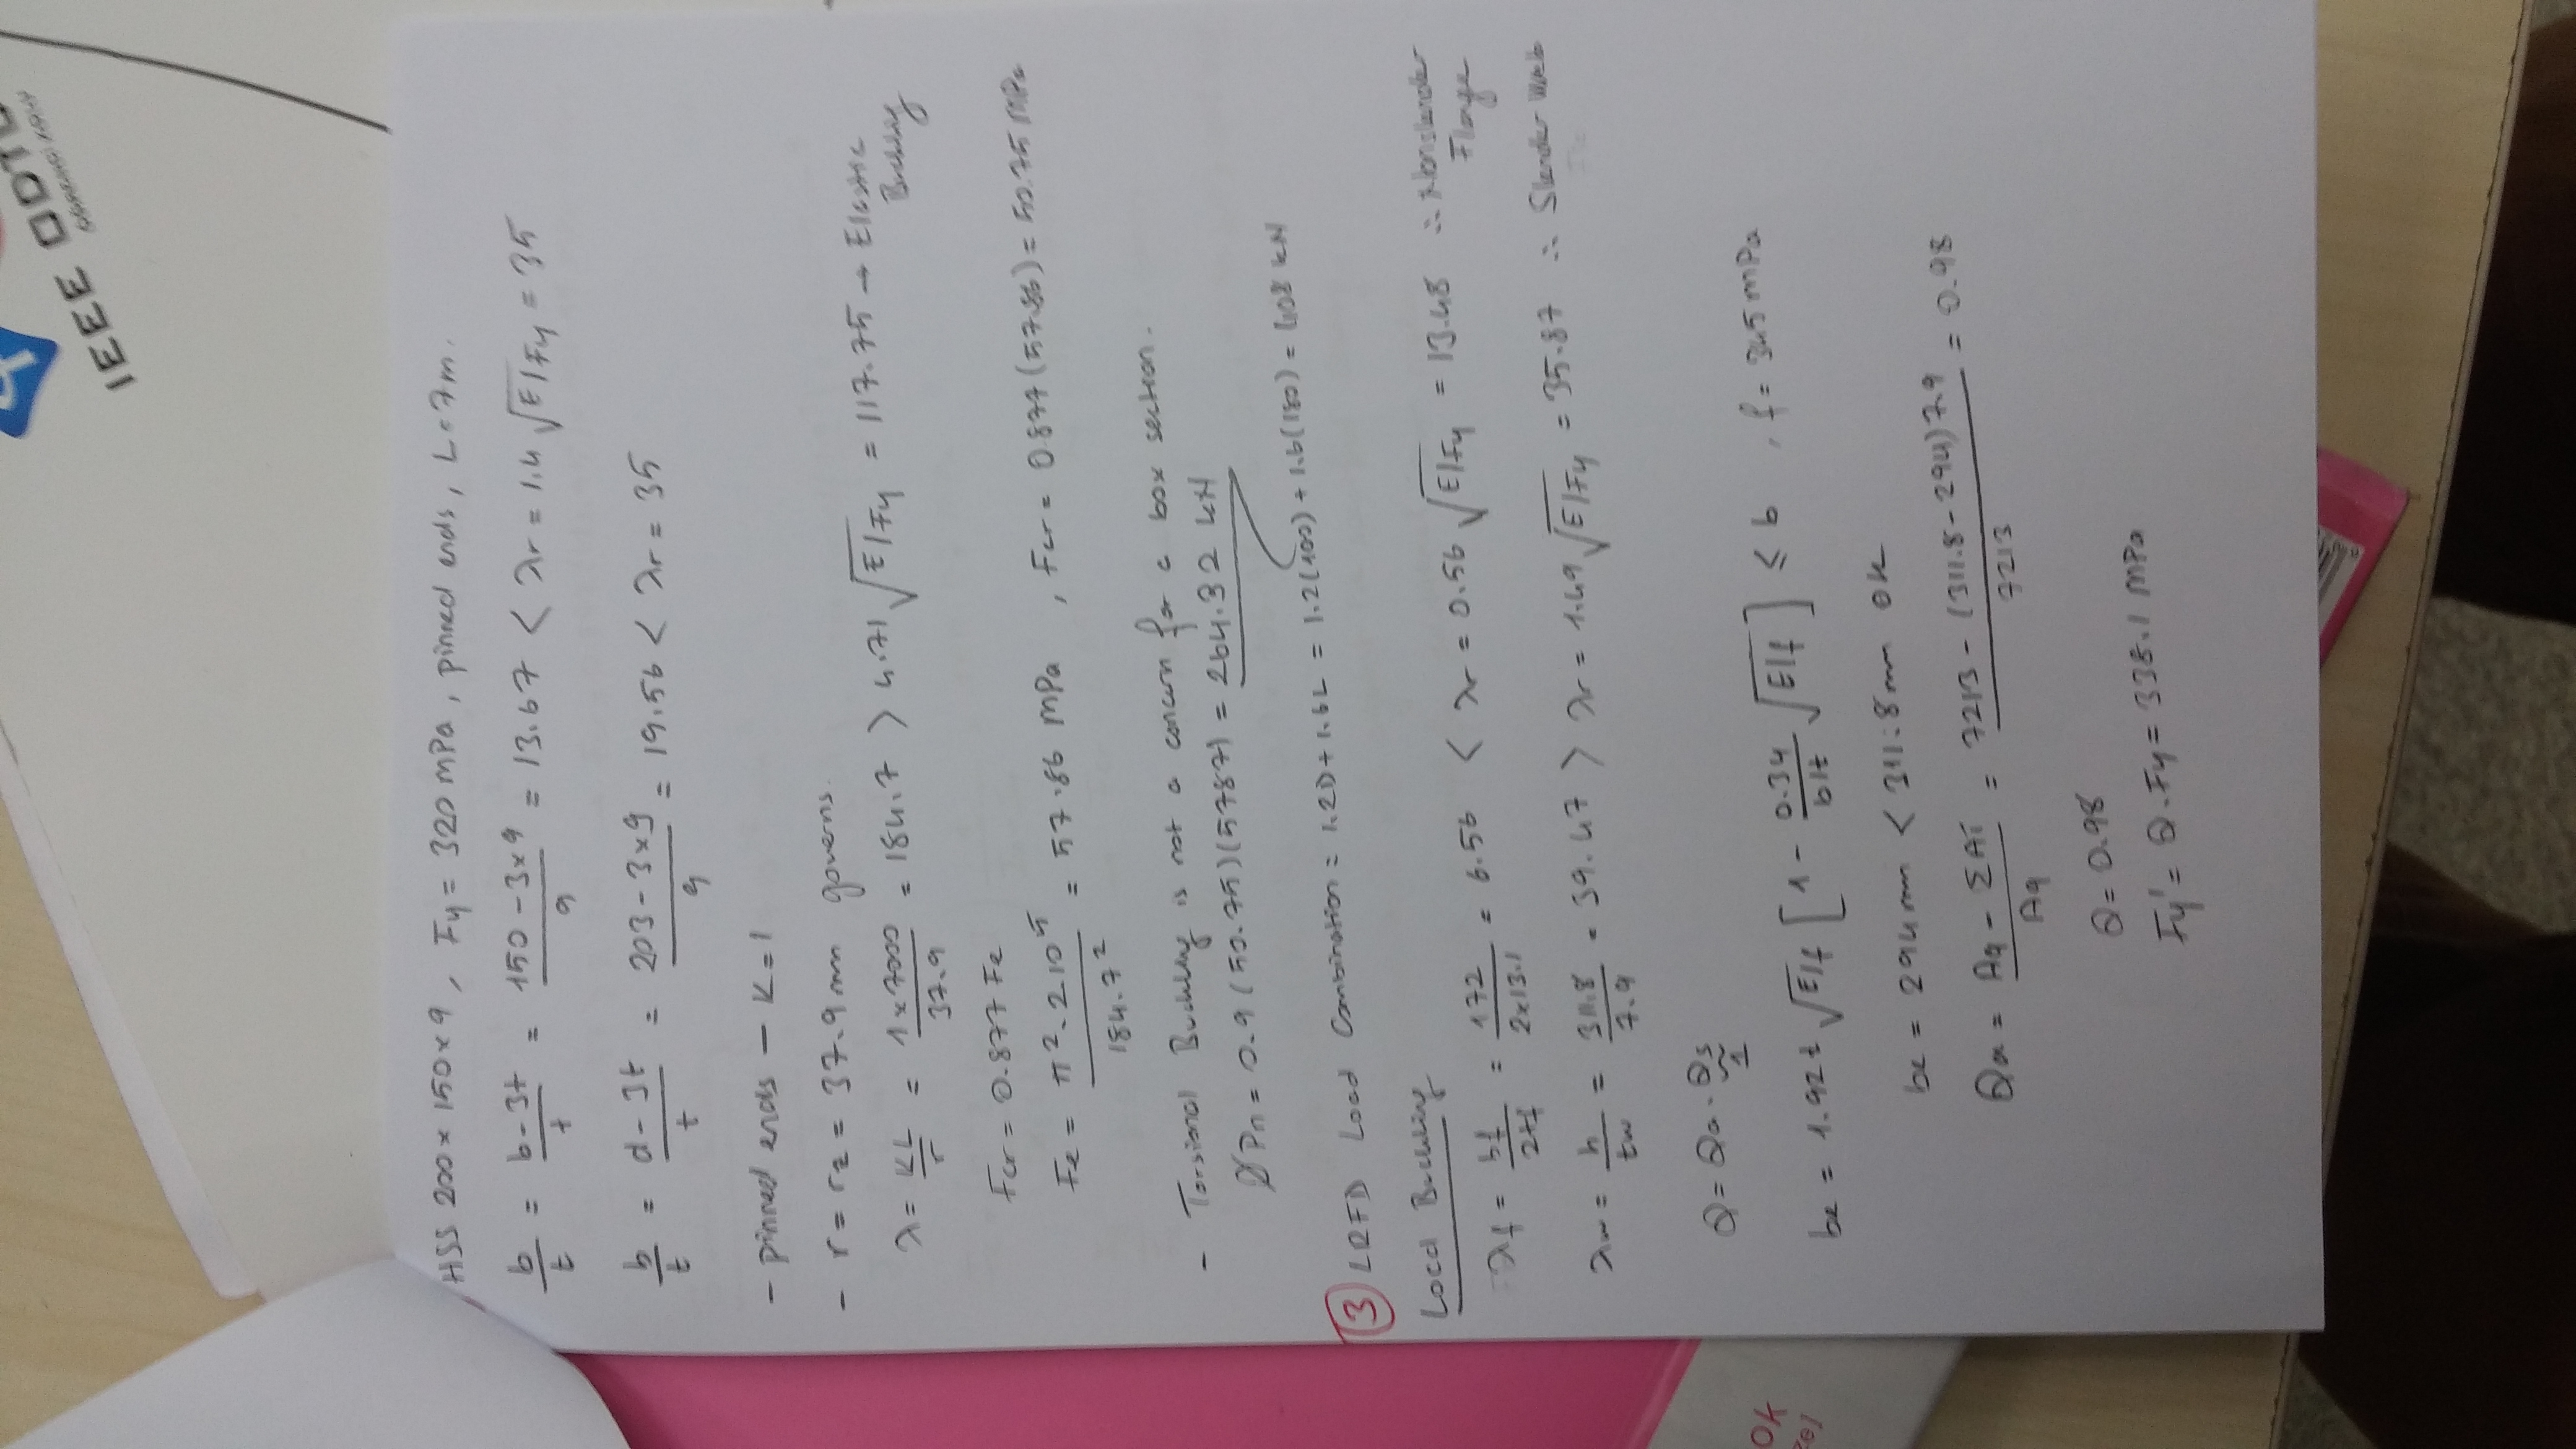 IEEE ODTÜ
ÖĞRENCİ KOLU
HSS 200×150×9, Fy = 320 mPa, pinned ends, L=7m.
b/t = (b-3t)/t = (150-3×9)/9 = 13.67 < λr = 1.4 √E/Fy = 35
b/t = (d-3t)/t = (203-3×9)/9 = 19.56 < λr = 35
- pinned ends - K=1
- r = rz = 37.9 mm governs.
λ = KL/r = (1×7000)/37.9 = 184.7 > 4.71 √E/Fy = 117.75 → Elastic Buckling
Fcr = 0.877 Fe
Fe = (π²·2 10⁵)/184.7² = 57.86 MPa , Fcr = 0.877(57.86) = 50.75 MPa
- Torsional Buckling is not a concern for a box section.
ØPn = 0.9 (50.75)(5787) = 264.32 kN
3 LRFD Load Combination = 1.2D + 1.6L = 1.2(100) + 1.6(180) = 408 kN
Local Buckling
λf = bf/2tf = 172/(2×13.1) = 6.56 < λr = 0.56 √E/Fy = 13.48 ∴ Nonslender Flange
λw = h/tw = 311.8/7.9 = 39.47 > λr = 1.49 √E/Fy = 35.87 ∴ Slender Web
Q = Qa · Qs
1
be = 1.92t √E/f [1 - 0.34/(b/t) √E/f] ≤ b , f = 345 mPa
be = 294 mm < 311.8 mm OK
Qa = (Ag - ΣAi)/Ag = (7213 - (311.8-294)7.9)/7213 = 0.98
Q = 0.98
Fy' = Q.Fy = 338.1 MPa
OK